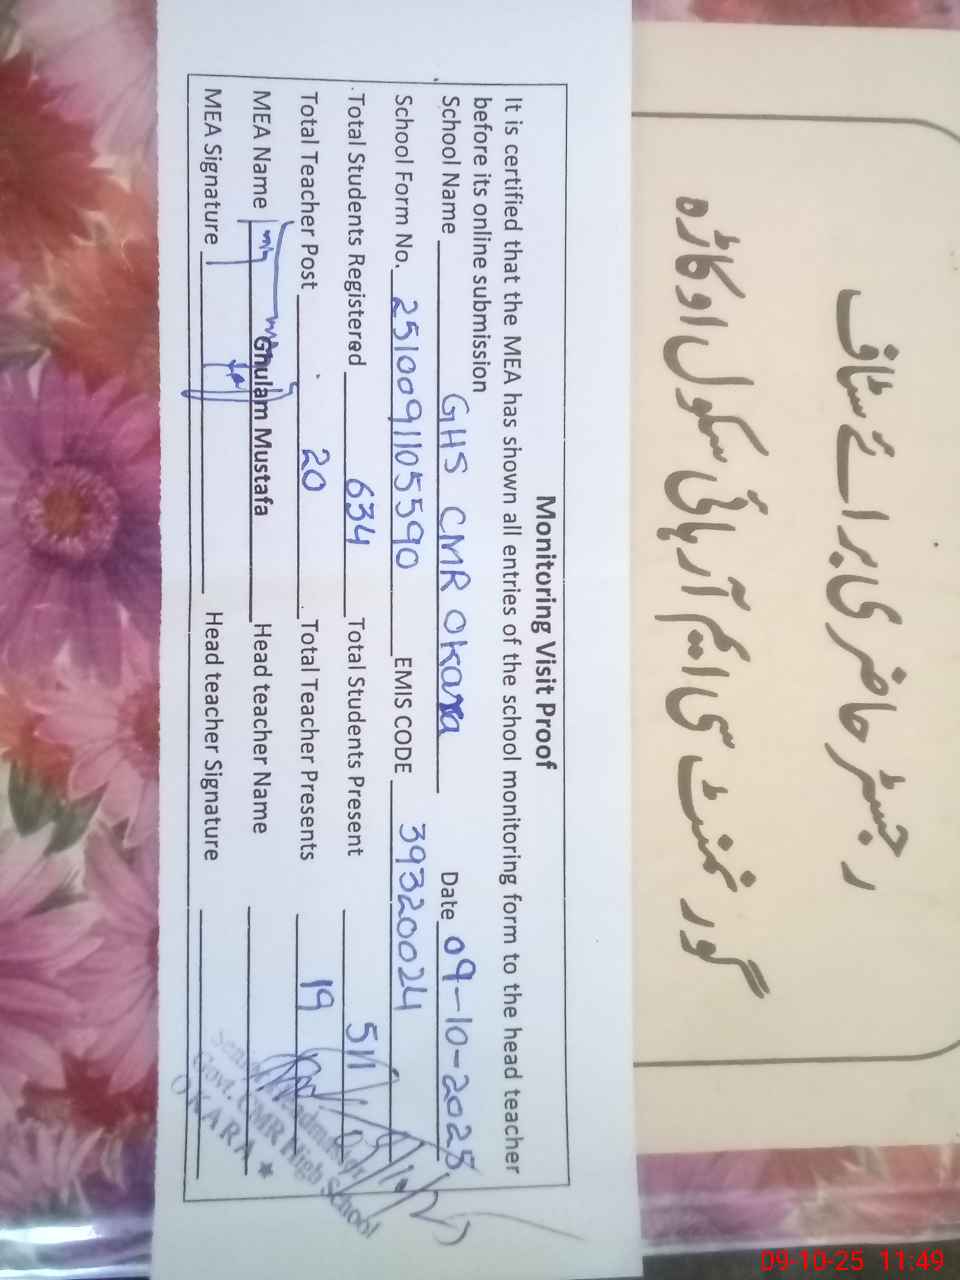 رجسٹر حاضری برائے سٹاف
گورنمنٹ سی ایم آر ہائی سکول اوکاڑہ
Monitoring Visit Proof
It is certified that the MEA has shown all entries of the school monitoring form to the head teacher
before its online submission
School Name GHS CMR Okara Date 09-10-2025
School Form No. 2510091105590 EMIS CODE 39320024
Total Students Registered 634 Total Students Present 511
Total Teacher Post 20 Total Teacher Presents 19
MEA Name Ghulam Mustafa Head teacher Name
MEA Signature Head teacher Signature
Senior Headmaster
Govt. CMR High School
OKARA ★
09-10-25 11:49